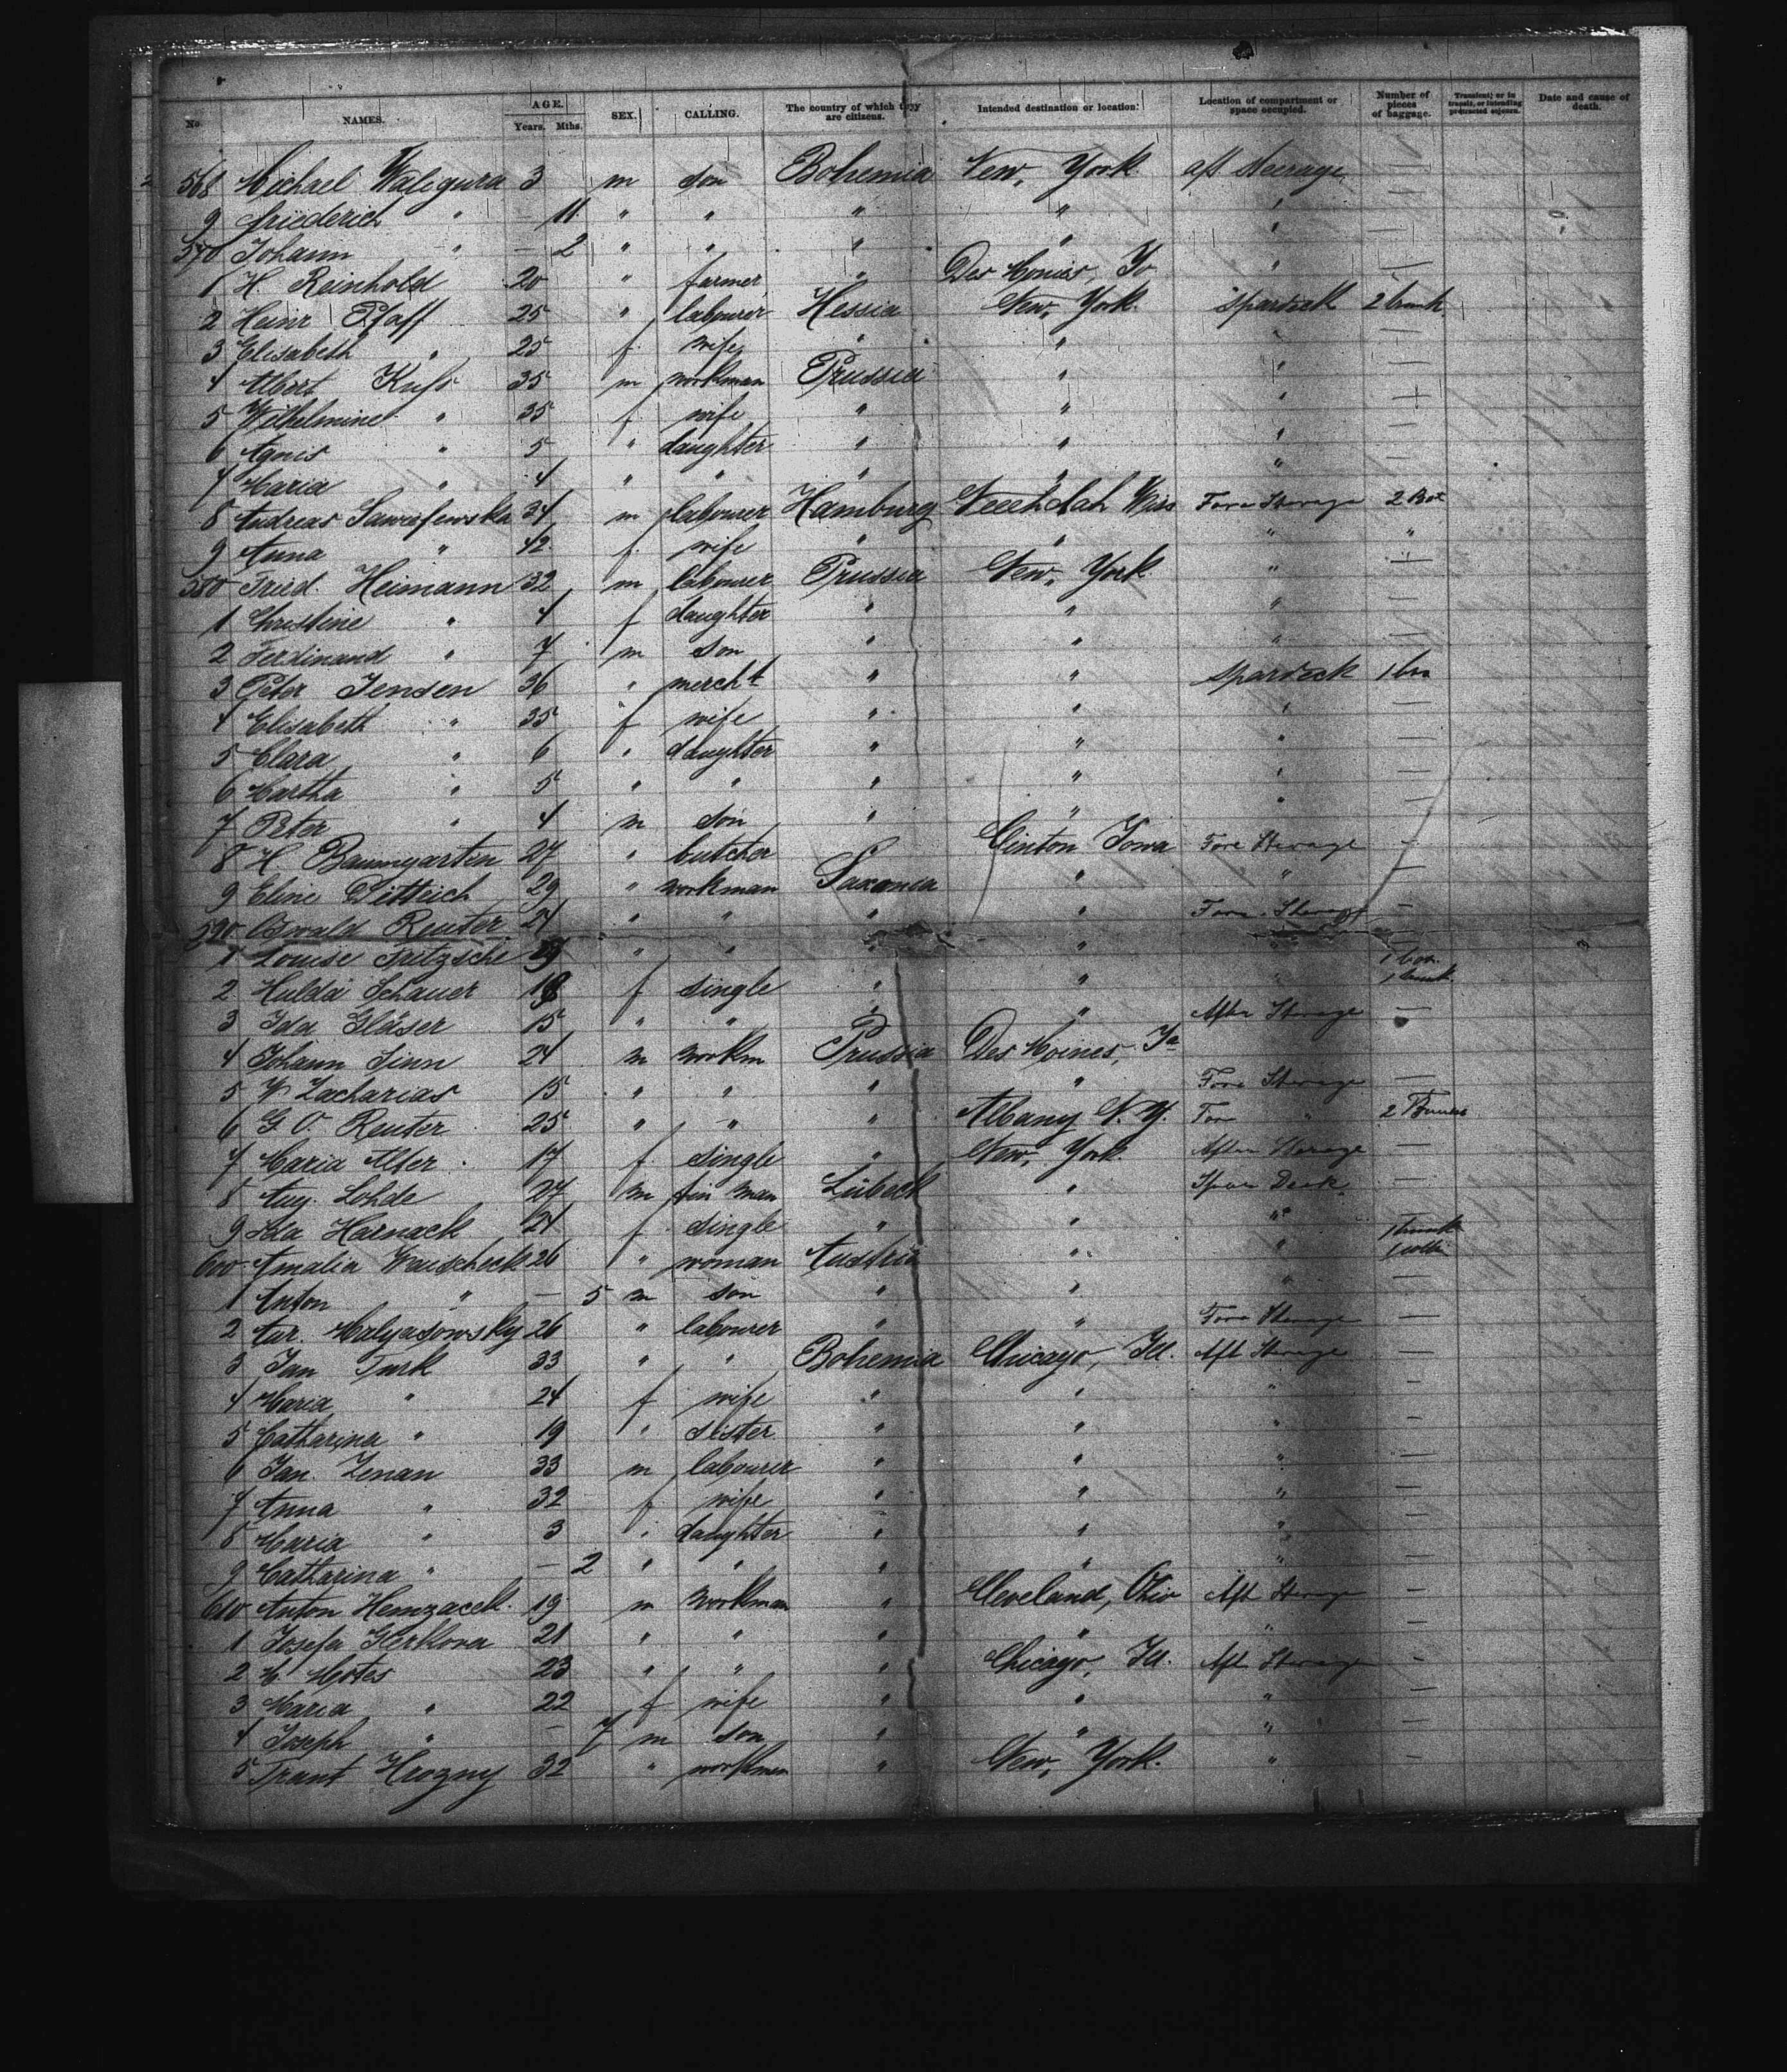 No. NAMES. AGE. Years. Mths. SEX. CALLING. The country of which they are citizens. Intended destination or location: Location of compartment or space occupied. Number of pieces of baggage. Transient; or in transit, or intending protracted sojourn. Date and cause of death.
568 Michael Waligura 3 m son Bohemia New York aft Steerage —
9 Friederich " — 11 " " " " " —
570 Johann " — 2 " " " " " —
1 H Reinhold 20 " farmer " Des Moines, Io " —
2 Heinr Pfaff 25 " labourer Hessia New York Spardeck 2 trunk
3 Elisabeth " 25 f wife " " " —
4 Albert Kufs 35 m workman Prussia " " —
5 Wilhelmine " 35 f wife " " " —
6 Agnis " 5 " daughter " " " —
7 Maria " 4 " " " " " —
8 Andreas 34 m labourer Hamburg Wiss Fore Sterage 2 Box
9 Anna " 42 f wife " " " "
580 Fried. Heimann 32 m labourer Prussia New York " —
1 Christine " 4 f daughter " " " —
2 Ferdinand " 7 m son " " " —
3 Peter Jensen 36 " mercht " " Spardeck 1 box
4 Elisabeth " 35 f wife " " " —
5 Clara " 6 " daughter " " " —
6 Martha " 5 " " " " " —
7 Peter " 4 m son " " " —
8 H Baumgarten 27 " butcher " Clinton Iowa Fore Sterage —
9 Eline Dittrich 29 " workman Saxonia " " —
590 Oswald Reuter 24 " " " " Fore Sterage —
1 Louise Fritzsche 19 " " " " " 1 box
2 Hulda Schauer 18 f single " " " 1 trunk
3 Ida Gläser 15 " " " " After Sterage —
4 Johann Sinn 24 m workm Prussia Des Moines, Ia
5 W Zacharias 15 " " " " Fore Sterage —
6 G O Reuter 25 " " " Albany N.Y. For " 2
7 Maria Alter 17 f single " New York After Sterage —
8 Aug. Lohde 27 m man Lübeck " Spar Deck —
9 Ida Harnack 24 f single " " " 1 trunk
600 Amalia 26 " woman Austria " " 1
1 Anton " — 5 m son " " " —
2 Malyasowsky 26 " labourer " " Fore Sterage —
3 Jan Turk 33 " " Bohemia Chicago, Ill. Aft Sterage —
4 Maria " 24 f wife " " " —
5 Catharina " 19 " sister " " " —
6 Jan. Zenan 33 m labourer " " " —
7 Anna " 32 f wife " " " —
8 Maria " 3 " daughter " " " —
9 Catharina " — 2 " " " " " —
610 Anton Hemzacek 19 m workman " Cleveland, Ohio Aft Sterage —
1 Josefa 21 " " " " " —
2 M. Motes 23 " " " Chicago, Ill. Aft Sterage —
3 Maria " 22 f wife " " " —
4 Joseph " — 7 m son " " " —
5 Hrozny 32 " workman " New York. " —